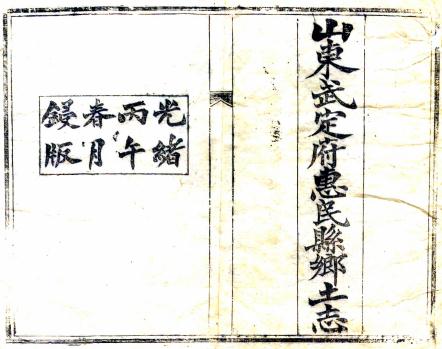 山東武定府惠民縣鄉土志
光緒
丙午
春月
鋟版